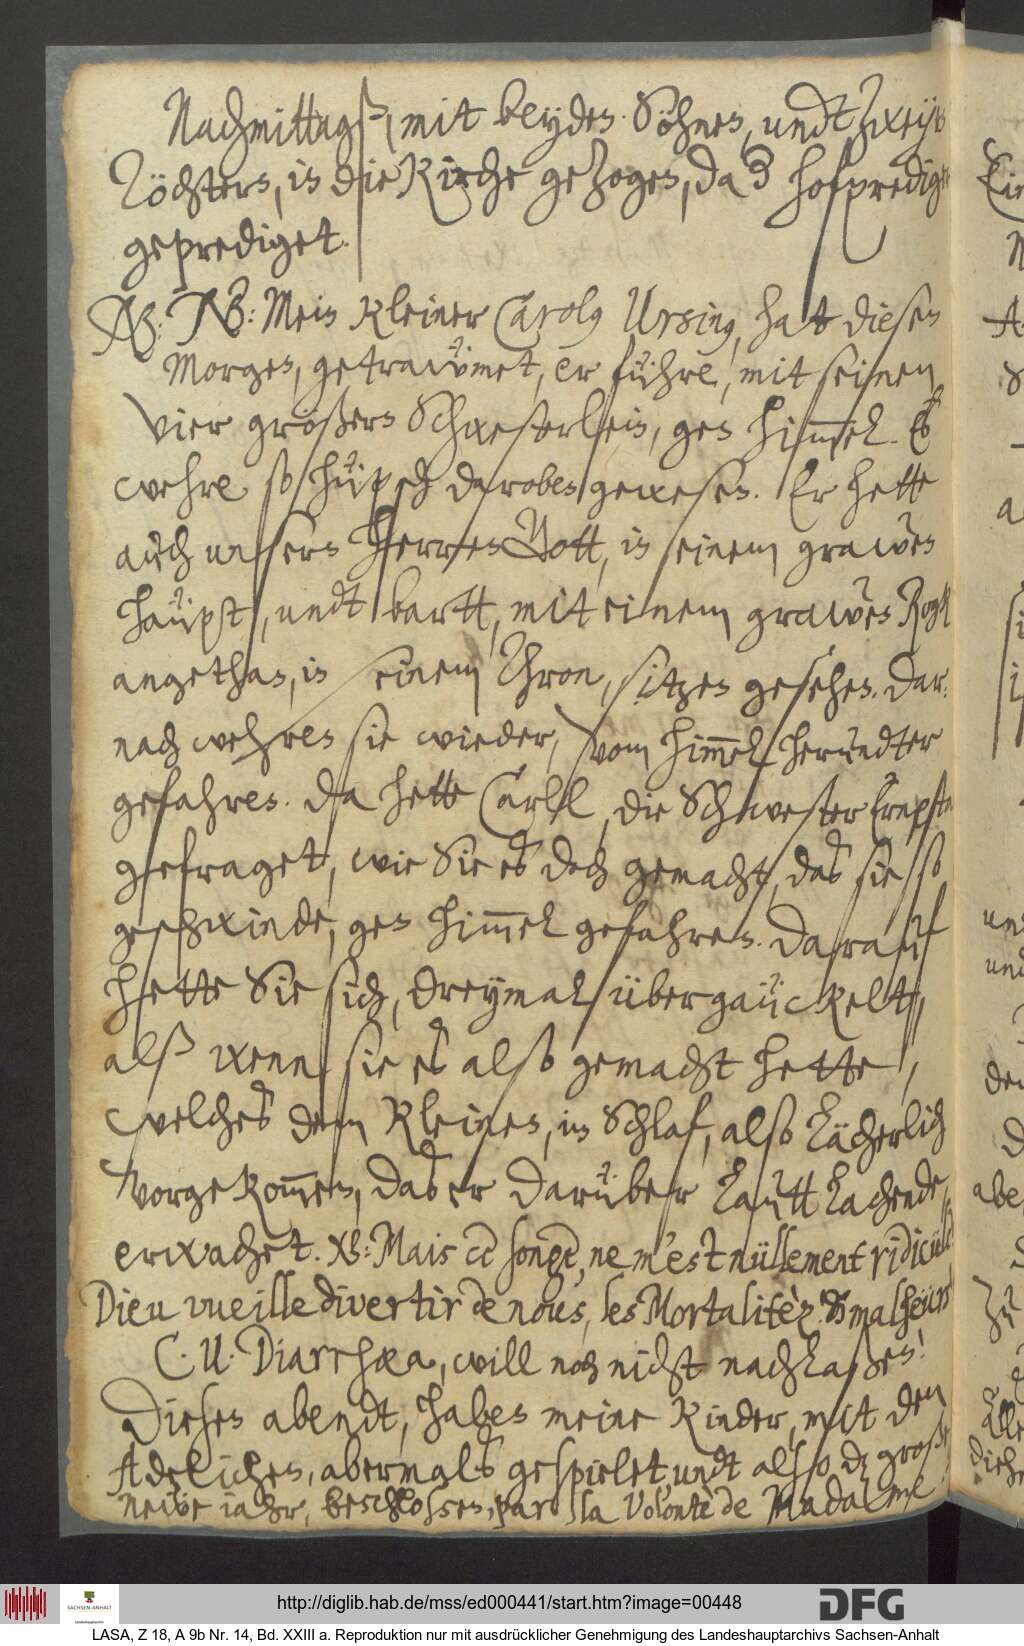 Nachmittagß, mit beyden Söhnen, undt zweyen
Töchtern, in die Kirche gezogen, da der hofprediger
geprediget.
NB: NB: Mein kleiner Carolus Ursinus, hat diesen
Morgen, getrawmet, er führe, mit seinen
vier größern Schwesterlein, gen himmel. Es
wehre so hüpsch daroben gewesen. Er hette
auch unsern Herren Gott, in seinem grawen
häupt, undt bartt, mit einem grawen Rogk
angethan, in seinem Thron, sitzen gesehen. Dar-
nach wehren sie wieder, vom himmel herundter
gefahren. Da hette Carll, die Schwester Ernesta
gefraget, wie Sie es doch gemacht, das sie so
geschwinde, gen himmel gefahren. Darauf
hette Sie sich, dreymal übergäuckelt,
alß wenn sie es also gemacht hette,
welches dem kleinen, im Schlaf, also lächerlich
vorgekommen, das er darüber lautt lachende,
erwachet. NB: Mais ce songe, ne m'est nüllement ridicüle.
Dieu vueille divertir de nous, les Mortalitèz, & malheurs!
C. U. Diarrhœa, will noch nicht nachlaßen!
Diesen abendt, haben meine Kinder, mit den
Adelichen, abermals gespielet, undt also das große
Newe iahr, beschloßen, par la Volontè de Madame
http://diglib.hab.de/mss/ed000441/start.htm?image=00448
SACHSEN-ANHALT
Landeshauptarchiv
DFG
LASA, Z 18, A 9b Nr. 14, Bd. XXIII a. Reproduktion nur mit ausdrücklicher Genehmigung des Landeshauptarchivs Sachsen-Anhalt